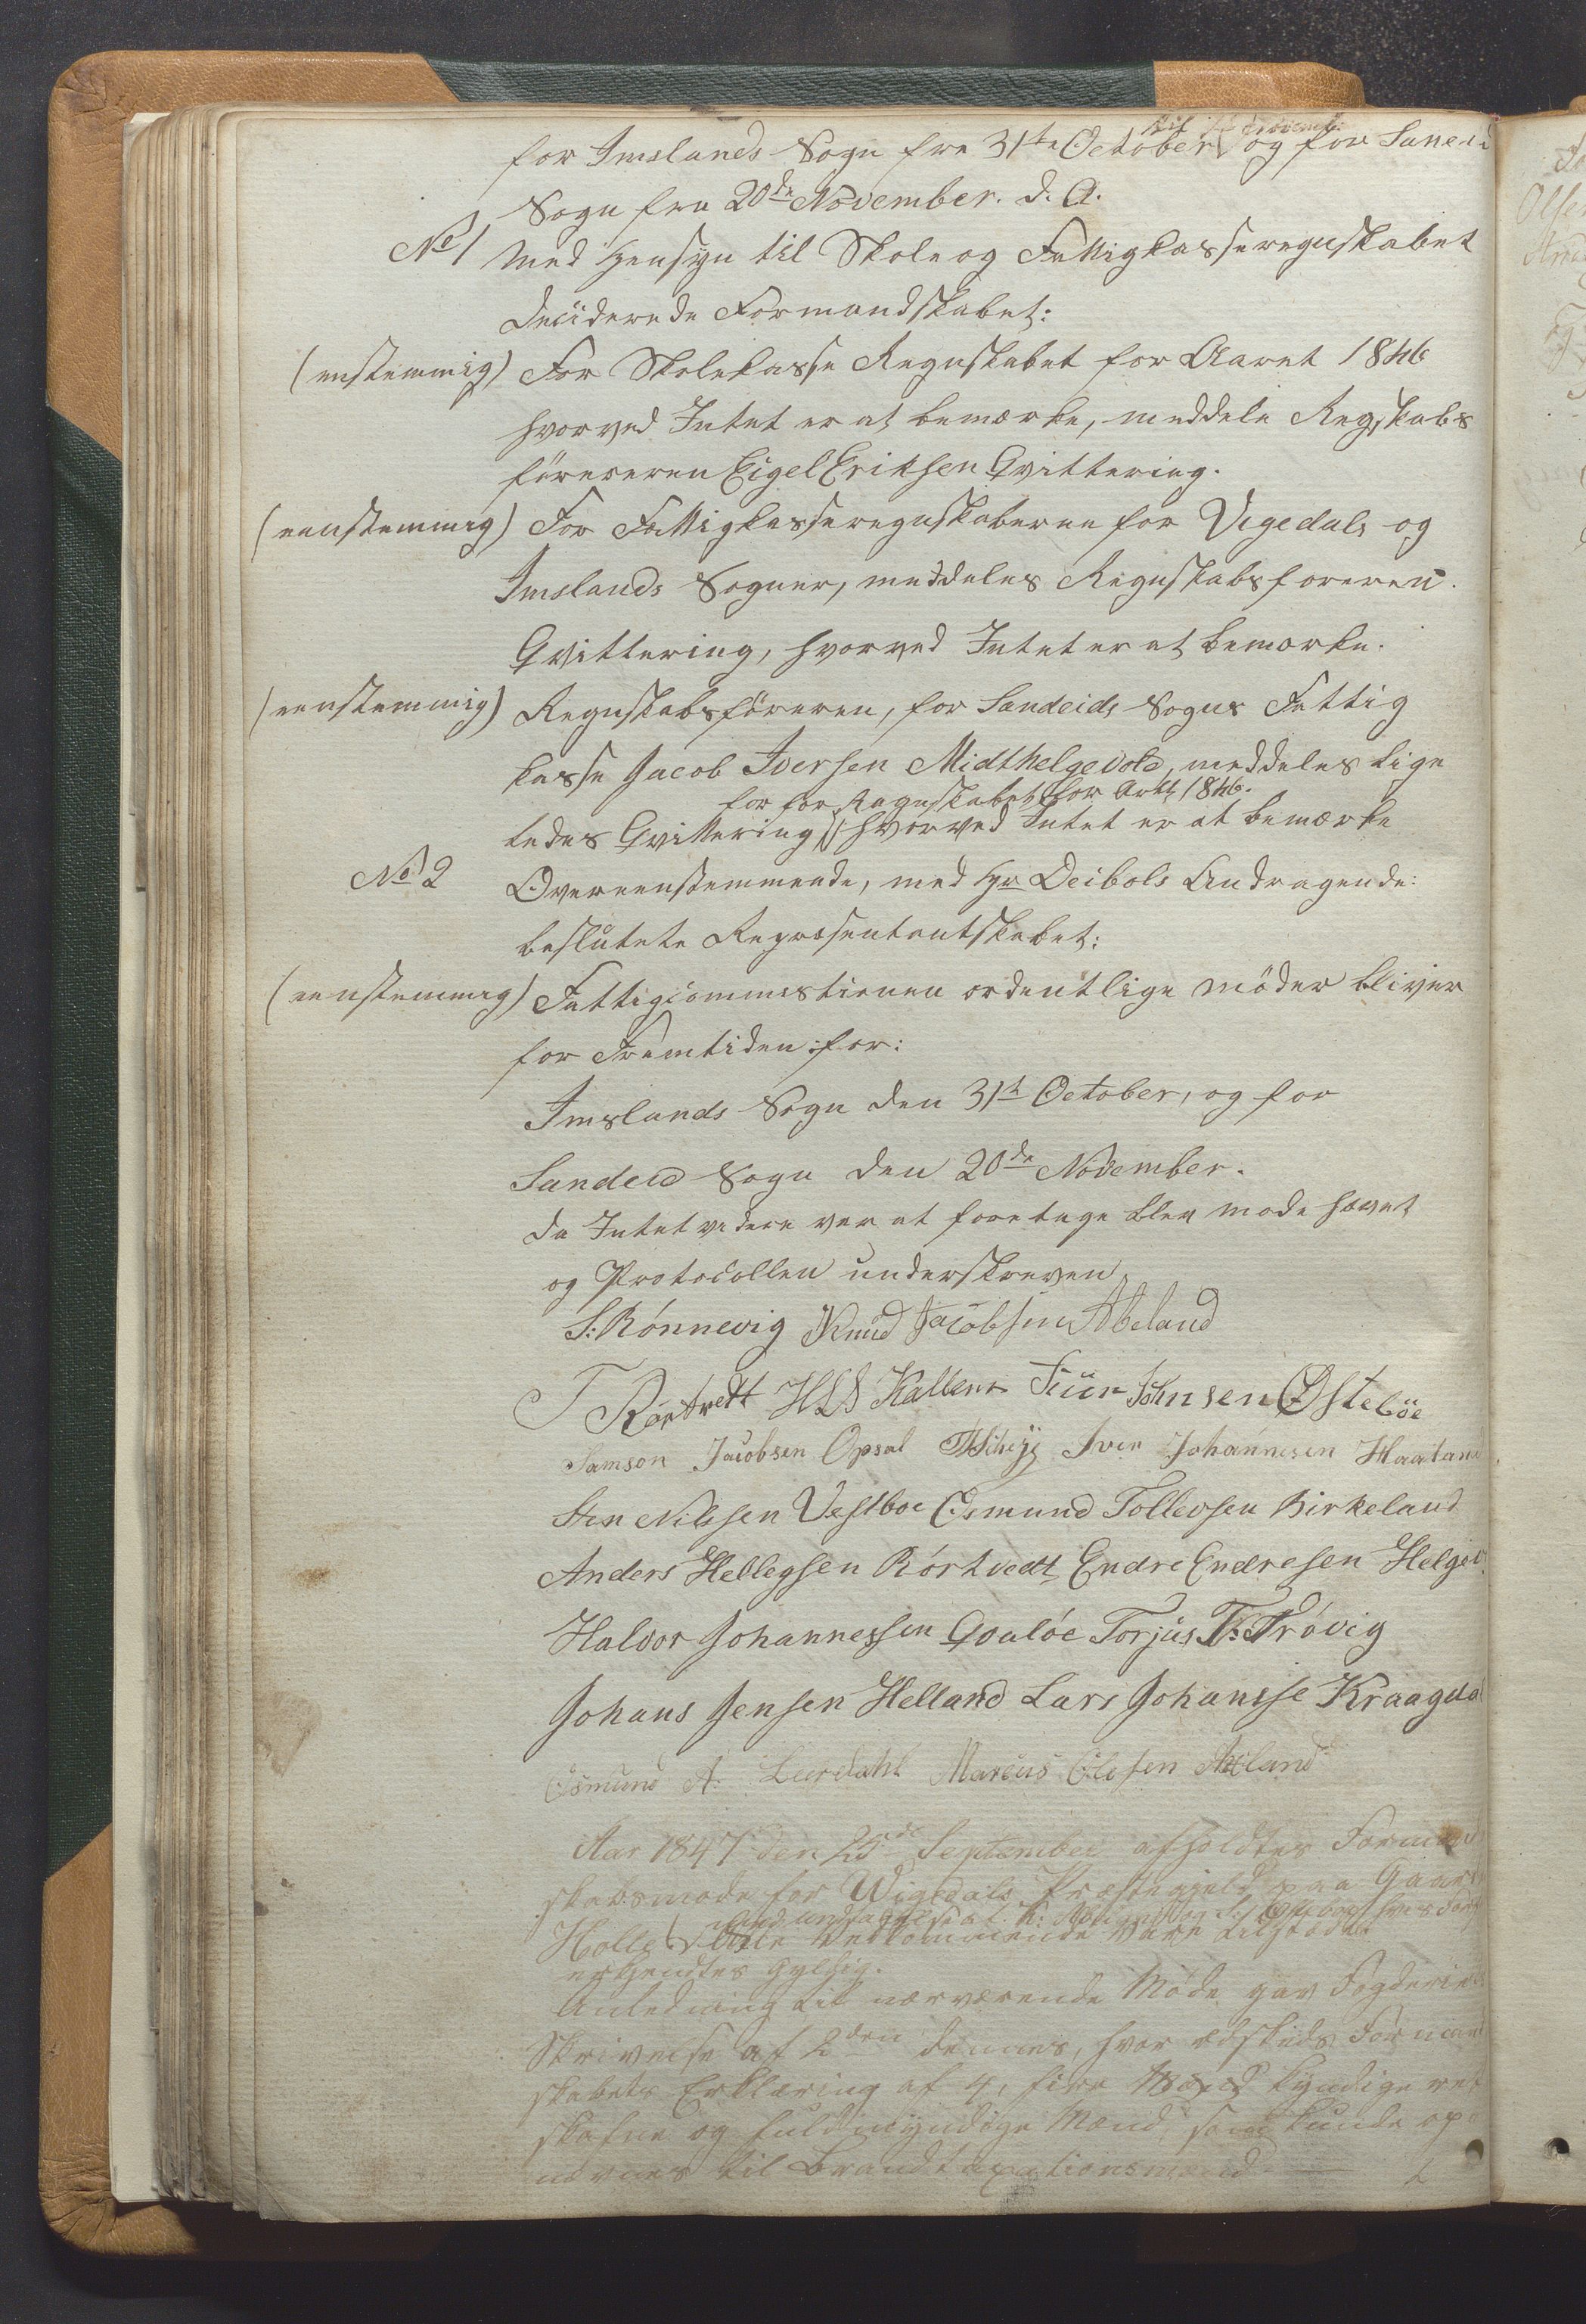 for Imslands Sogn fra 31te October til November og for Sandeid
Sogn fra 20de November. d. A.
No 1 Med Hensyn til Skole og Fattigkasseregnskabet
deciderede Formandskabet:
(enstemmig) For Skolekasse Regnskabet for Aaret 1846
hvorved Intet er at bemærke, meddele Regskabs
föreren Eigel Eriksen Qvittering.
(eenstemmig) For Fattigkasseregnskaberne for Vigedals og
Imslands Sogner, meddeles Regnskabsforeren
Qvittering, hvorved Intet er at bemærke.
(eenstemmig) Regnskabsföreren, for Sandeids Sogns Fattig
kasse Jacob Iversen Midthelgevold, meddeles lige
for for Regnskabet for 1846.
ledes Qvittering, hvorved Intet er at bemærke
No 2 Overeenstemmende, med Hr Deibols Andragende:
beslutete Repræsentantskabet:
(eenstemmig) Fattigcommistionen ordentlige möder bliver
for Fremtiden: for:
Imslands Sogn den 31te October, og for
Sandeid Sogn den 20de November.
Da Intet videre var at foretage blev mode hævet
og Protocollen underskreven
S: Rönnevig Knud Jacobsen Abeland
T Rörtvedt HLS Kallem Fiin Johnsen Østebøe
Samson Jacobsen Opsal Iver Johannesen Haaland
Sten Nilssen Vestboe Osmund Tollevsen Birkeland
Anders Hellegsen Rörtvedt Endre Endresen Helgev
Halvor Johannessen Qvalöe Torjus T: Trövig
Johans Jensen Helland Lars Johansse Kraagedal
Osmund A: Leerdahl Marcus Olesen Axland
Aar 1847 den 25de September afholdtes Forman
skabsmode for Wigedals Præstegjeld paa Gaard
med undtagelse af K: og S:
Holle Alle Vedkommende vare tilstæde
erkjendtes gyldig.
Anledning til nærværende Möde gav Fogderiets
Skrivelse af 2den dennes, hvor ædskeds Forman
skabets Erklæring af 4, fire kyndige ret
skafne og fuldmyndige Mænd, som kunde op
nævnes til Brandtaxationsmænd